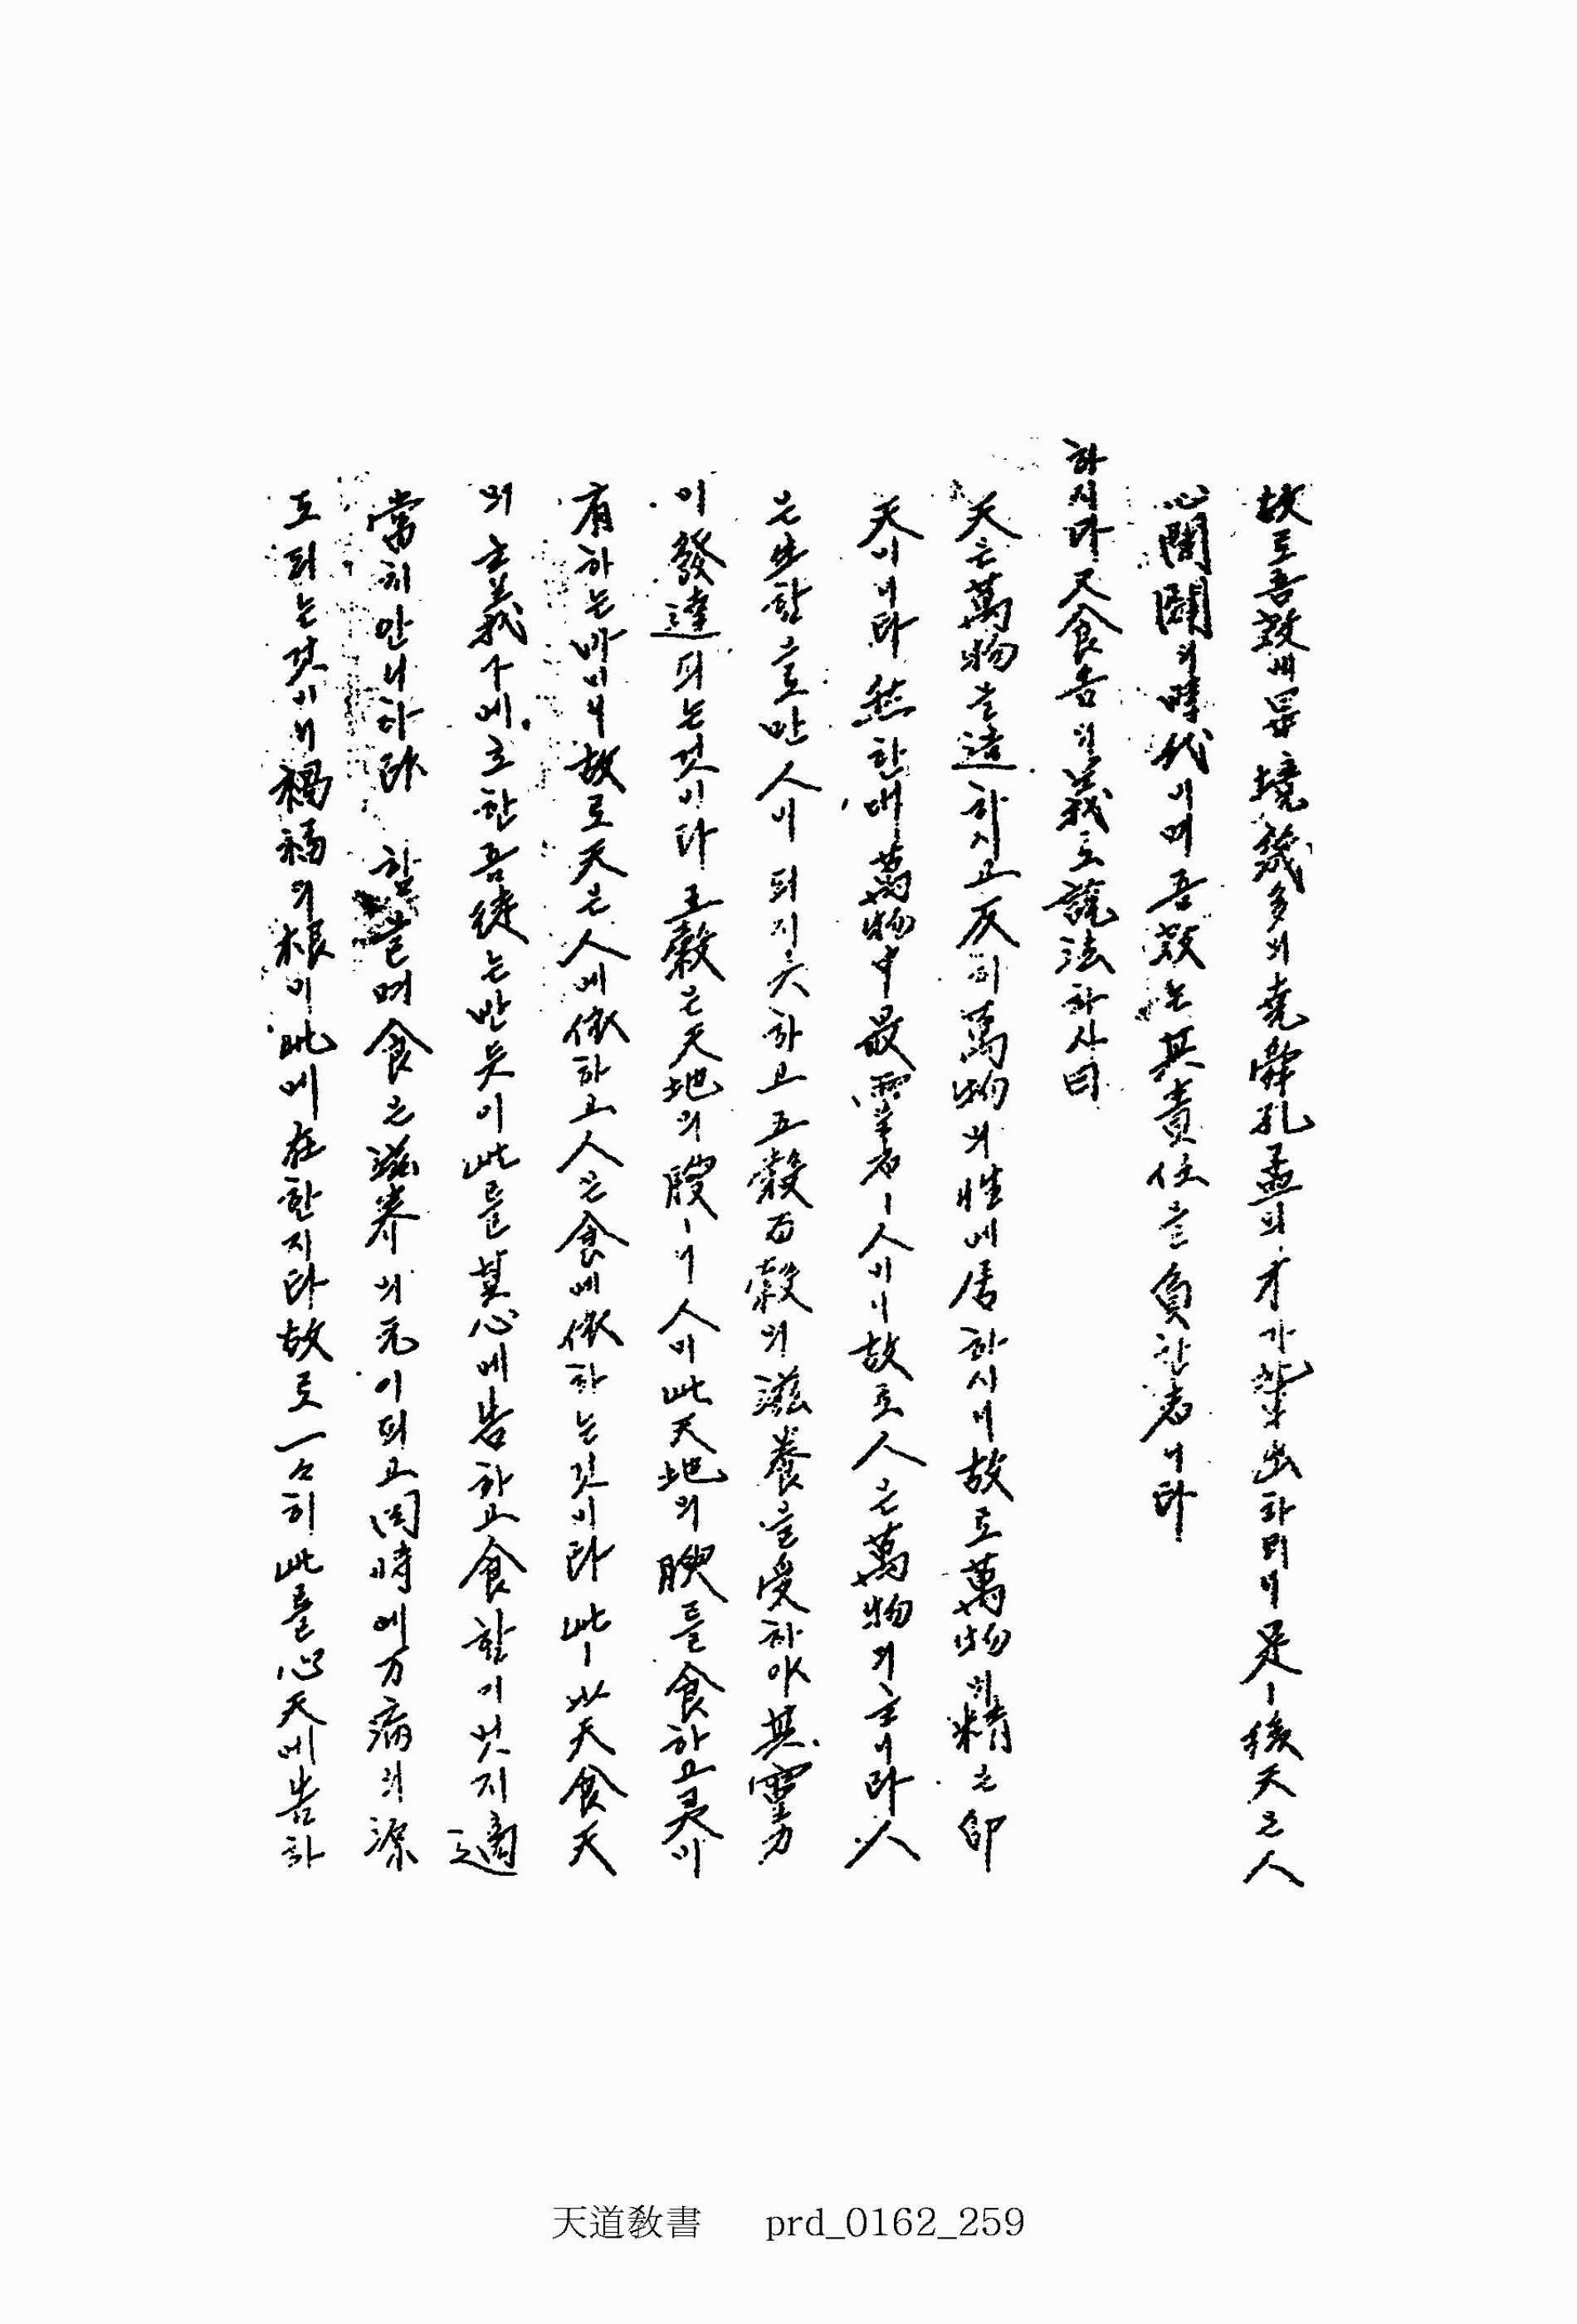 故로吾敎에另境幾多의堯舜孔孟의才가輩出하리니是ㅣ後天은人
心開闢의時代이며吾敎는其責任을負한者니라
하시다又食告의義로說法하사曰
天은萬物을造하시고反히萬物의性에居하시니故로萬物의精은卽
天이니라然한대萬物中最靈者ㅣ人이니故로人은萬物의主니라人
은生함으로만人이되지六하고五穀百穀의滋養을受하야其靈力
이發達되는것이라五穀은天地의腴ㅣ니人이此天地의腴를食하고灵이
有하는바이니故로天은人에依하고人은食에依하는것이라此ㅣ以天食天
의主義下에立한吾徒는반듯이此를其心에告하고食함이엇지適
當치안니하랴 함을며食은滋养의元이되고同時에万病의源
도되는것이니禍福의根이此에在한지라故로一々히此를心天에告하
天道敎書 prd_0162_259